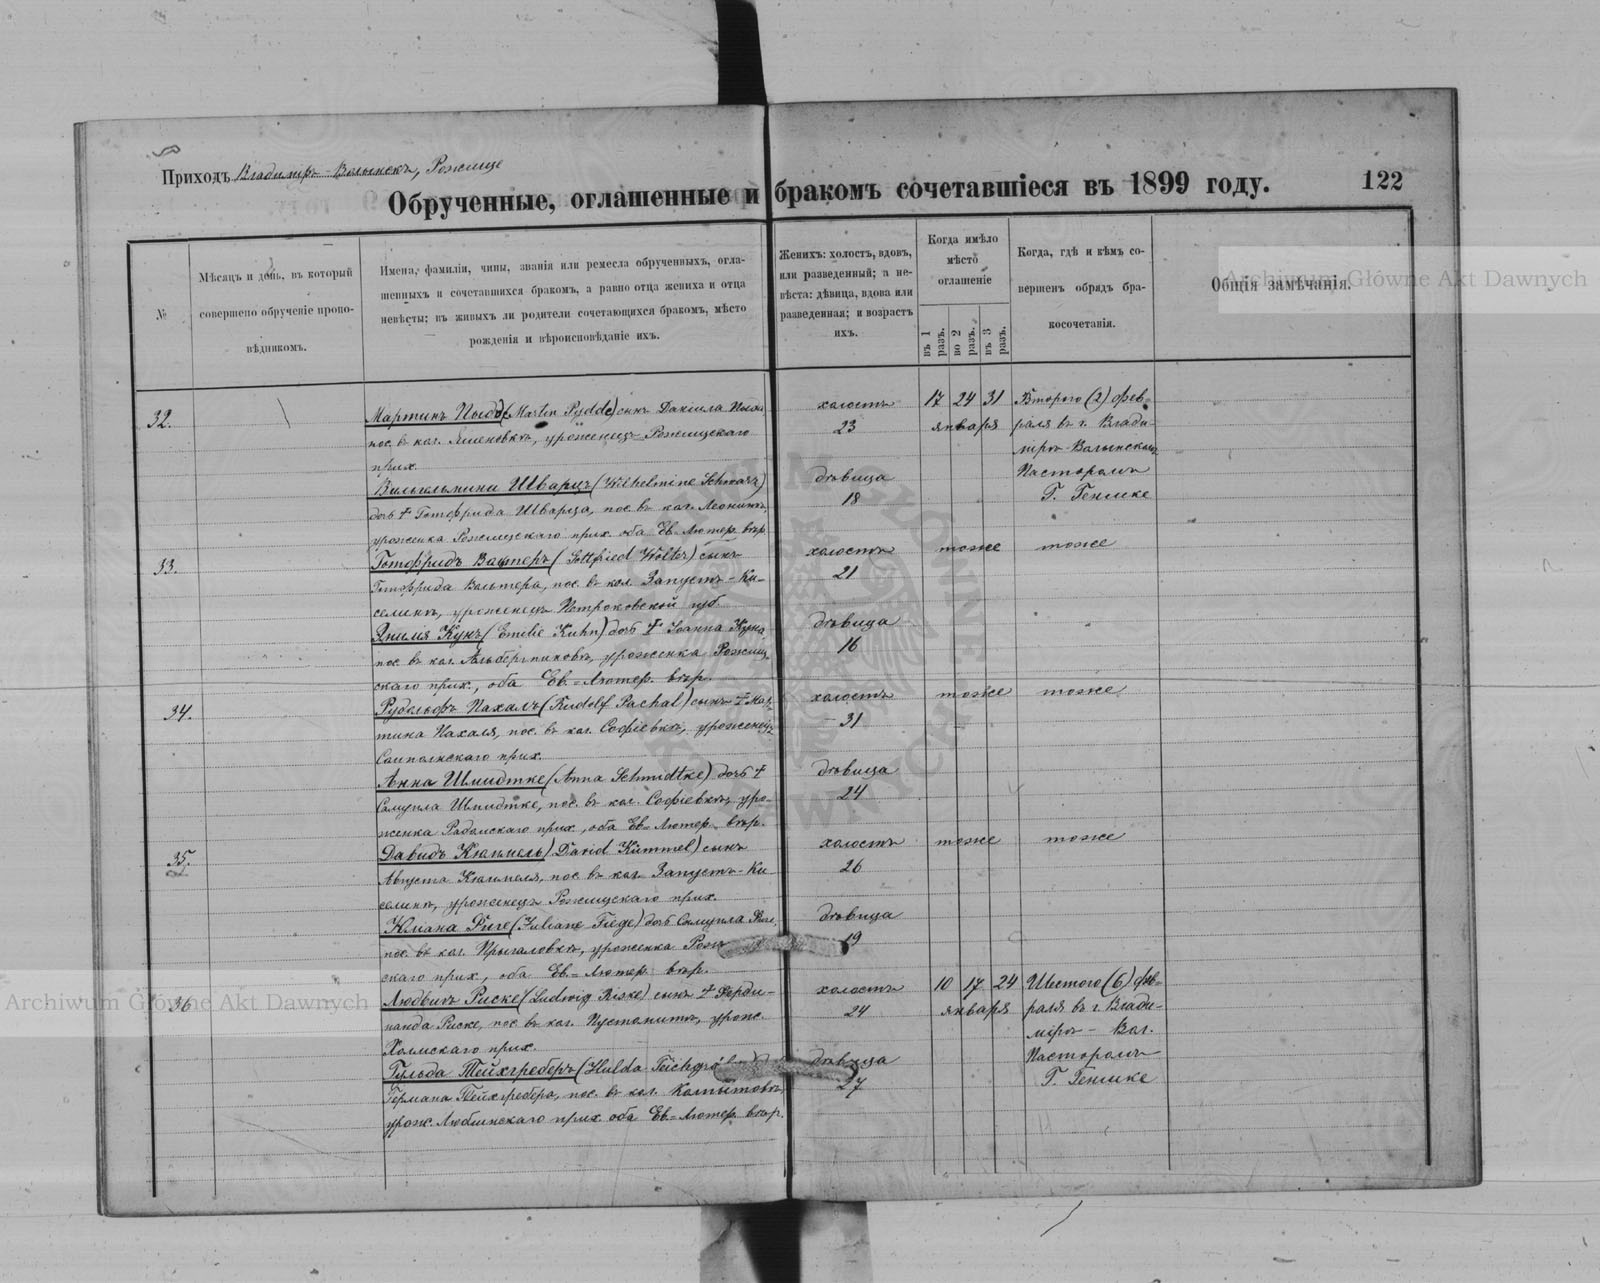 Приходъ Владиміръ-Волынскъ, Рожище
Обрученные, оглашенные и бракомъ сочетавшіеся въ 1899 году.
122
№
Мѣсяцъ и день, въ который
совершено обрученіе пропо-
вѣдникомъ.
Имена, фамиліи, чины, званія или ремесла обрученныхъ, огла-
шенныхъ и сочетавшихся бракомъ, а равно отца жениха и отца
невѣсты; въ живыхъ ли родители сочетающихся бракомъ, мѣсто
рожденія и вѣроисповѣданіе ихъ.
Женихъ: холостъ, вдовъ,
или разведенный; а не-
вѣста: дѣвица, вдова или
разведенная; и возрастъ
ихъ.
Когда имѣло
мѣсто
оглашеніе
въ 1 разъ.
во 2 разъ.
въ 3 разъ.
Когда, гдѣ и кѣмъ со-
вершенъ обрядъ бра-
косочетанія.
Общія замѣчанія.
Archiwum Główne Akt Dawnych
32.
Мартинъ Пыдде (Martin Pydde) сынъ Даніила Пыдде
пос. въ кол. уроженецъ Рожищскаго
прих.
холостъ
23
17 24 31
января
Второго (2) фев-
раля въ г. Влади-
міръ-Волынскомъ
Пасторомъ
Г. Генике
Вильгельмина Шварцъ (Wilhelmine Schwarz)
дочь † Готфрида Шварца, пос. въ кол. Леоновкѣ,
уроженка Рожищскаго прих. оба Ев. Лютер. вѣр.
дѣвица
18
33.
Готфридъ Вольтеръ (Gottfried Wolter) сынъ
Готфрида Вольтера, пос. въ кол. Запустъ-Ки-
селинѣ, уроженецъ Петроковской губ.
холостъ
21
тоже
тоже
Эмилія Кунъ (Emilie Kuhn) дочь † Іоанна Куна,
пос. въ кол. уроженка Рожищ-
скаго прих., оба Ев.-Лютер. вѣр.
дѣвица
16
34.
Рудольфъ Пахаль (Rudolf Pachal) сынъ † Мар-
тина Пахаля, пос. въ кол. Софіевкѣ, уроженецъ
Сомпольскаго прих.
холостъ
31
тоже
тоже
Анна Шмидтке (Anna Schmidtke) дочь †
Самуила Шмидтке, пос. въ кол. Софіевкѣ, уро-
женка Радомскаго прих., оба Ев.-Лютер. вѣр.
дѣвица
24
35.
Давидъ Кюммель (David Kümmel) сынъ
Августа Кюммеля, пос. въ кол. Запустъ-Ки-
селинѣ, уроженецъ Рожищскаго прих.
холостъ
26
тоже
тоже
Юліана Фиге (Juliane Fiege) дочь Самуила Фиге,
пос. въ кол. уроженка Рож
скаго прих., оба Ев.-Лютер. вѣр.
дѣвица
19
36
Людвигъ Риске (Ludwig Riske) сынъ † Ферди-
нанда Риске, пос. въ кол. Пустомитѣ, урож.
Холмскаго прих.
холостъ
24
10 17 24
января
Шестого (6) фев-
раля въ г. Влади-
міръ-Вол.
Пасторомъ
Г. Генике
Гульда Тейхгреберъ (Hulda
Германа Тейхгребера, пос. въ кол.
урож. Люблинскаго прих. оба Ев.-Лютер. вѣр.
дѣвица
27
Archiwum Główne Akt Dawnych